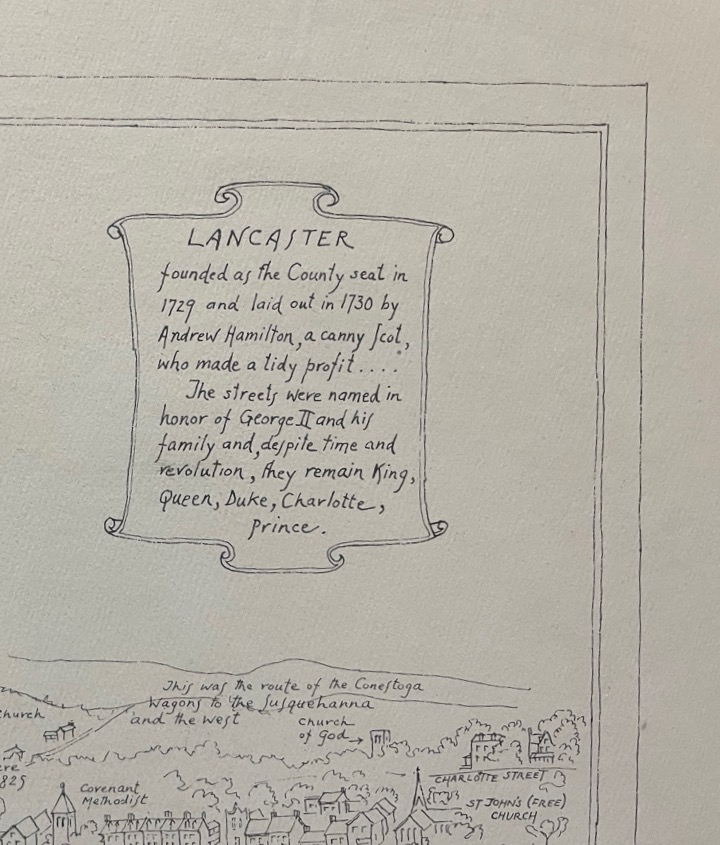 LANCASTER
founded as the County seat in
1729 and laid out in 1730 by
Andrew Hamilton, a canny Scot,
who made a tidy profit....
The streets were named in
honor of George II and his
family and, despite time and
revolution, they remain King,
Queen, Duke, Charlotte,
Prince.
This was the route of the Conestoga
Wagons to the Susquehanna
and the West
church
church
of God
CHARLOTTE STREET
825
Covenant
Methodist
ST JOHN'S (FREE)
CHURCH